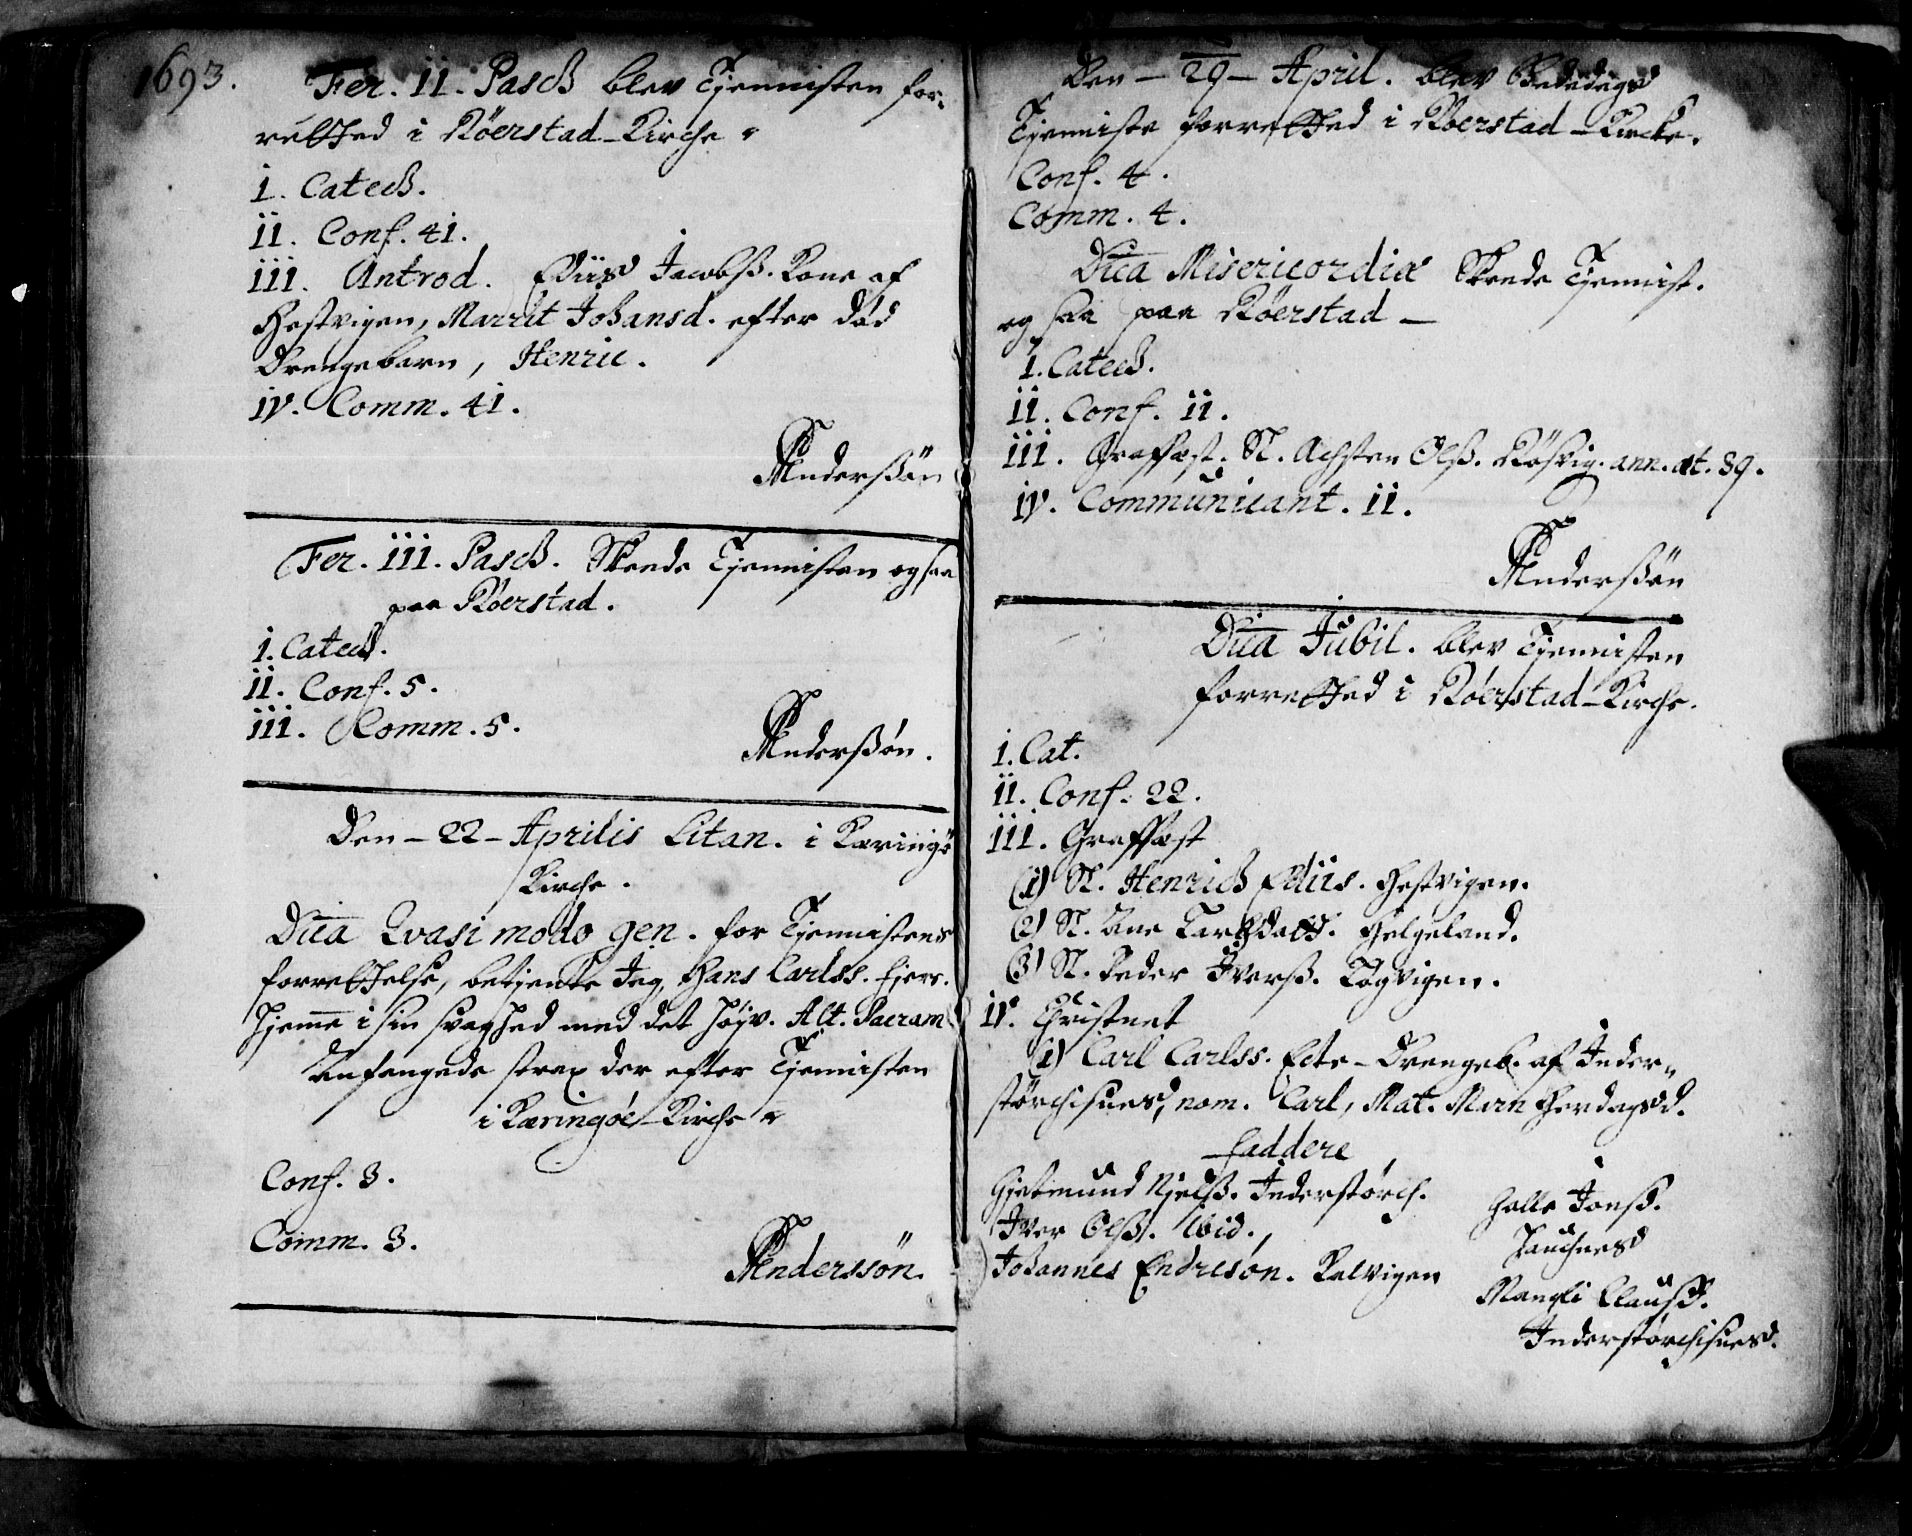 1693.
Fer. II. Pasch blev Tjennisten for-
retthed i Röerstad-Kirche
I. Catech.
II. Conf. 41.
III. Antrod. Eliis Jacobß. Kone af
Hestvigen, Marrit Johansd. efter död
Drengebarn, Henric.
IV. Comm. 41.
Anderßön
Fer. III. Pasch. Skeede Tjennisten og saa
paa Röerstad.
I. Catech.
II. Conf. 5.
III. Comm. 5.
Anderßön.
Den - 22 - Aprilis Litan. i Kæringö
Kirche.
Dica Qvasi modo gen. for Tjennistens
forretthelse, betjente Jeg, Hans Carlss.
Hjeme i sin svaghed med det Höjv. Alt. Sacram
Anfangede strax der efter Tjennisten
i Kæringöe Kirche
Conf. 3.
Comm. 3.
Anderssön.
Den - 29 - April. blev Bededags
Tjenniste forretthed i Röerstad-Kirche.
Conf. 4.
Comm. 4.
Dica Misericordiæ Skeede Tjennist.
og saa paa Röerstad -
I. Catech.
II. Conf. II.
III. Graffæst. Sl. Achsten Olß. Rösvig. ann. æt. 89.
IV. Communicant. II.
Anderßön
Dica Jubil. blev Tjennisten
forretthed i Röerstad-Kirche.
I. Cat.
II. Conf. 22.
III. Graffæst
(1) Sl. Henrich Eliis. Hestvigen.
(2) Sl. Ane Helgeland.
(3) Sl. Peder Iverß. Togvigen.
IV. Christnet
(1) Carl Carlss. Ecte-Drengeb. af Inder-
nom. Carl, Mat. Marn Herdagsd.
Faddere
Gjetmund Njelß. Inderstörch.
Iver Olß. ibid.
Johannes Endresön. Kalvigen
Halle Jonß.
Mangli Clausd.